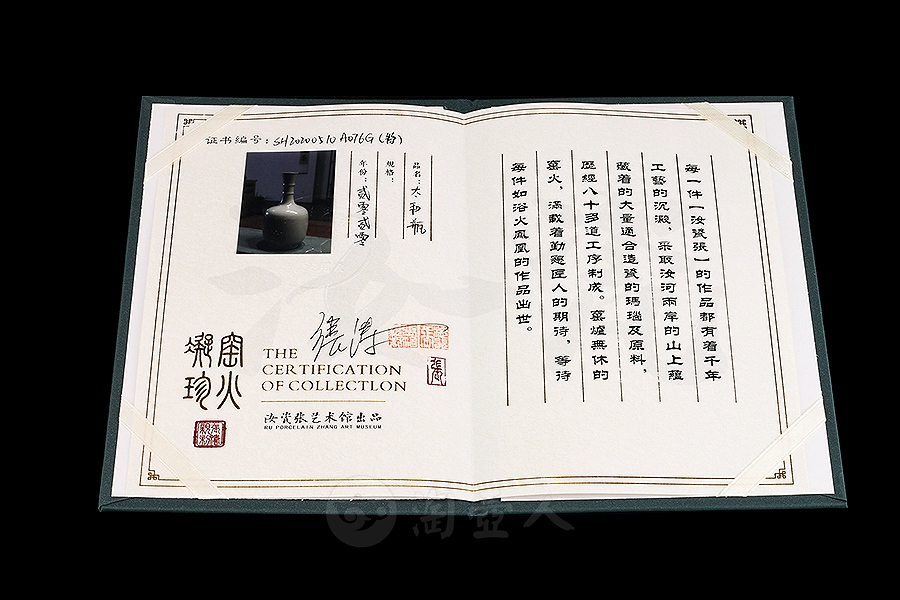 证书编号：SH20200510A076G(特)
品名：太和瓶
规格：
年份：贰零贰零
窑火
凝珍
THE
CERTIFICATION
OF COLLECTLON
汝瓷张艺术馆出品
RU PORCELAIN ZHANG ART MUSEUM
每一件「汝瓷張」的作品都有着千年
工藝的沉澱，采取汝河兩岸的山上蘊
藏着的大量適合造瓷的瑪瑙及原料，
歷經八十多道工序制成。窑爐無休的
窑火，滿載着勤懇匠人的期待，等待
每件如浴火鳳凰的作品出世。
陶壺人